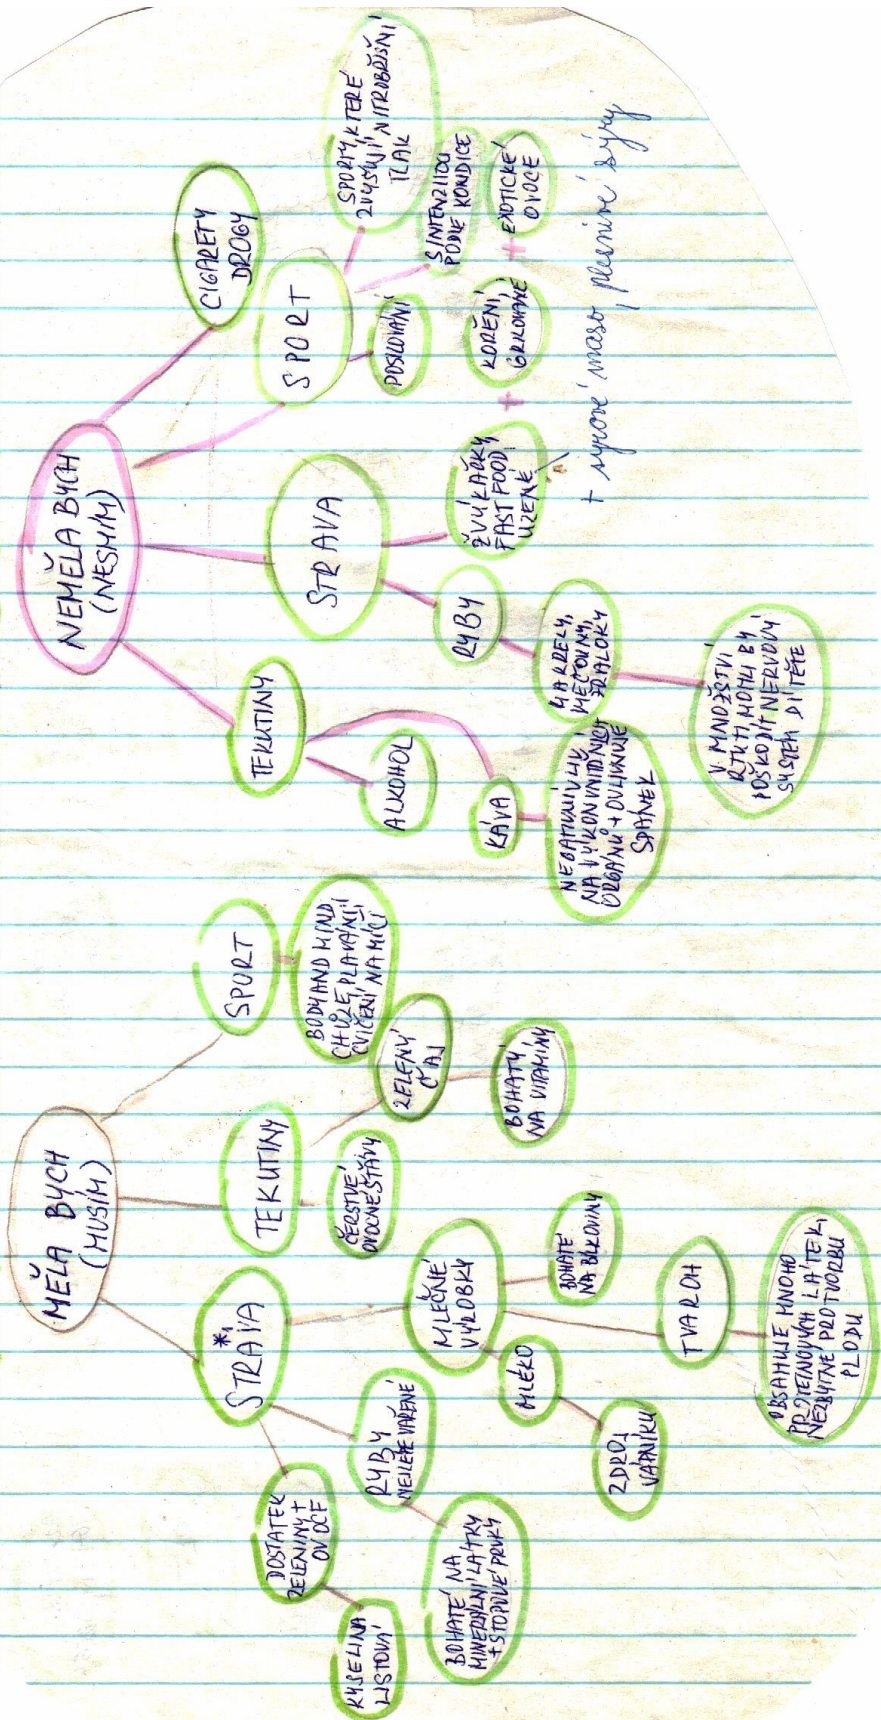 MĚLA BYCH
(MUSÍM)
*1
STRAVA
DOSTATEK
ZELENINY +
OVOCE
KYSELINA
LISTOVÁ
RYBY
NEJLÉPE VAŘENÉ
BOHATÉ NA
MINERÁLNÍ LÁTKY
+ STOPOVÉ PRVKY
MLEČNÉ
VÝROBKY
MLÉKO
ZDROJ
VÁPNÍKU
BOHATÉ
NA BÍLKOVINY
TVAROH
OBSAHUJE MNOHO
PROTEINOVÝCH LÁTEK,
NEZBYTNÉ PRO TVORBU
PLODU
TEKUTINY
ČERSTVÉ
OVOCNÉ ŠŤÁVY
ZELENÝ
ČAJ
BOHATÝ
NA VITAMÍNY
SPORT
BODY AND MIND,
CHŮZE, PLAVÁNÍ,
CVIČENÍ NA MÍČI
NEMĚLA BYCH
(NESMÍM)
TEKUTINY
ALKOHOL
KÁVA
NEGATIVNÍ VLIV
NA VÝKON VNITŘNÍCH
ORGÁNŮ + OVLIVŇUJE
SPÁNEK
STRAVA
RYBY
MAKRELY,
MEČOUNY,
ŽRALOKY
V MNOŽSTVÍ
RTUTI, MOHLI BY
POŠKODIT NERVOVÝ
SYSTÉM DÍTĚTE
ŽVÝKAČKY,
FAST FOOD,
UZENÉ
+
KOŘENÍ,
GRILOVANÉ
+
EXOTICKÉ
OVOCE
+ syrové maso, plesnivé sýry
SPORT
POSILOVÁNÍ
S INTENZITOU
PODLE KONDICE
SPORTY, KTERÉ
ZVYŠUJÍ NITROBŘIŠNÍ
TLAK
CIGARETY
DROGY